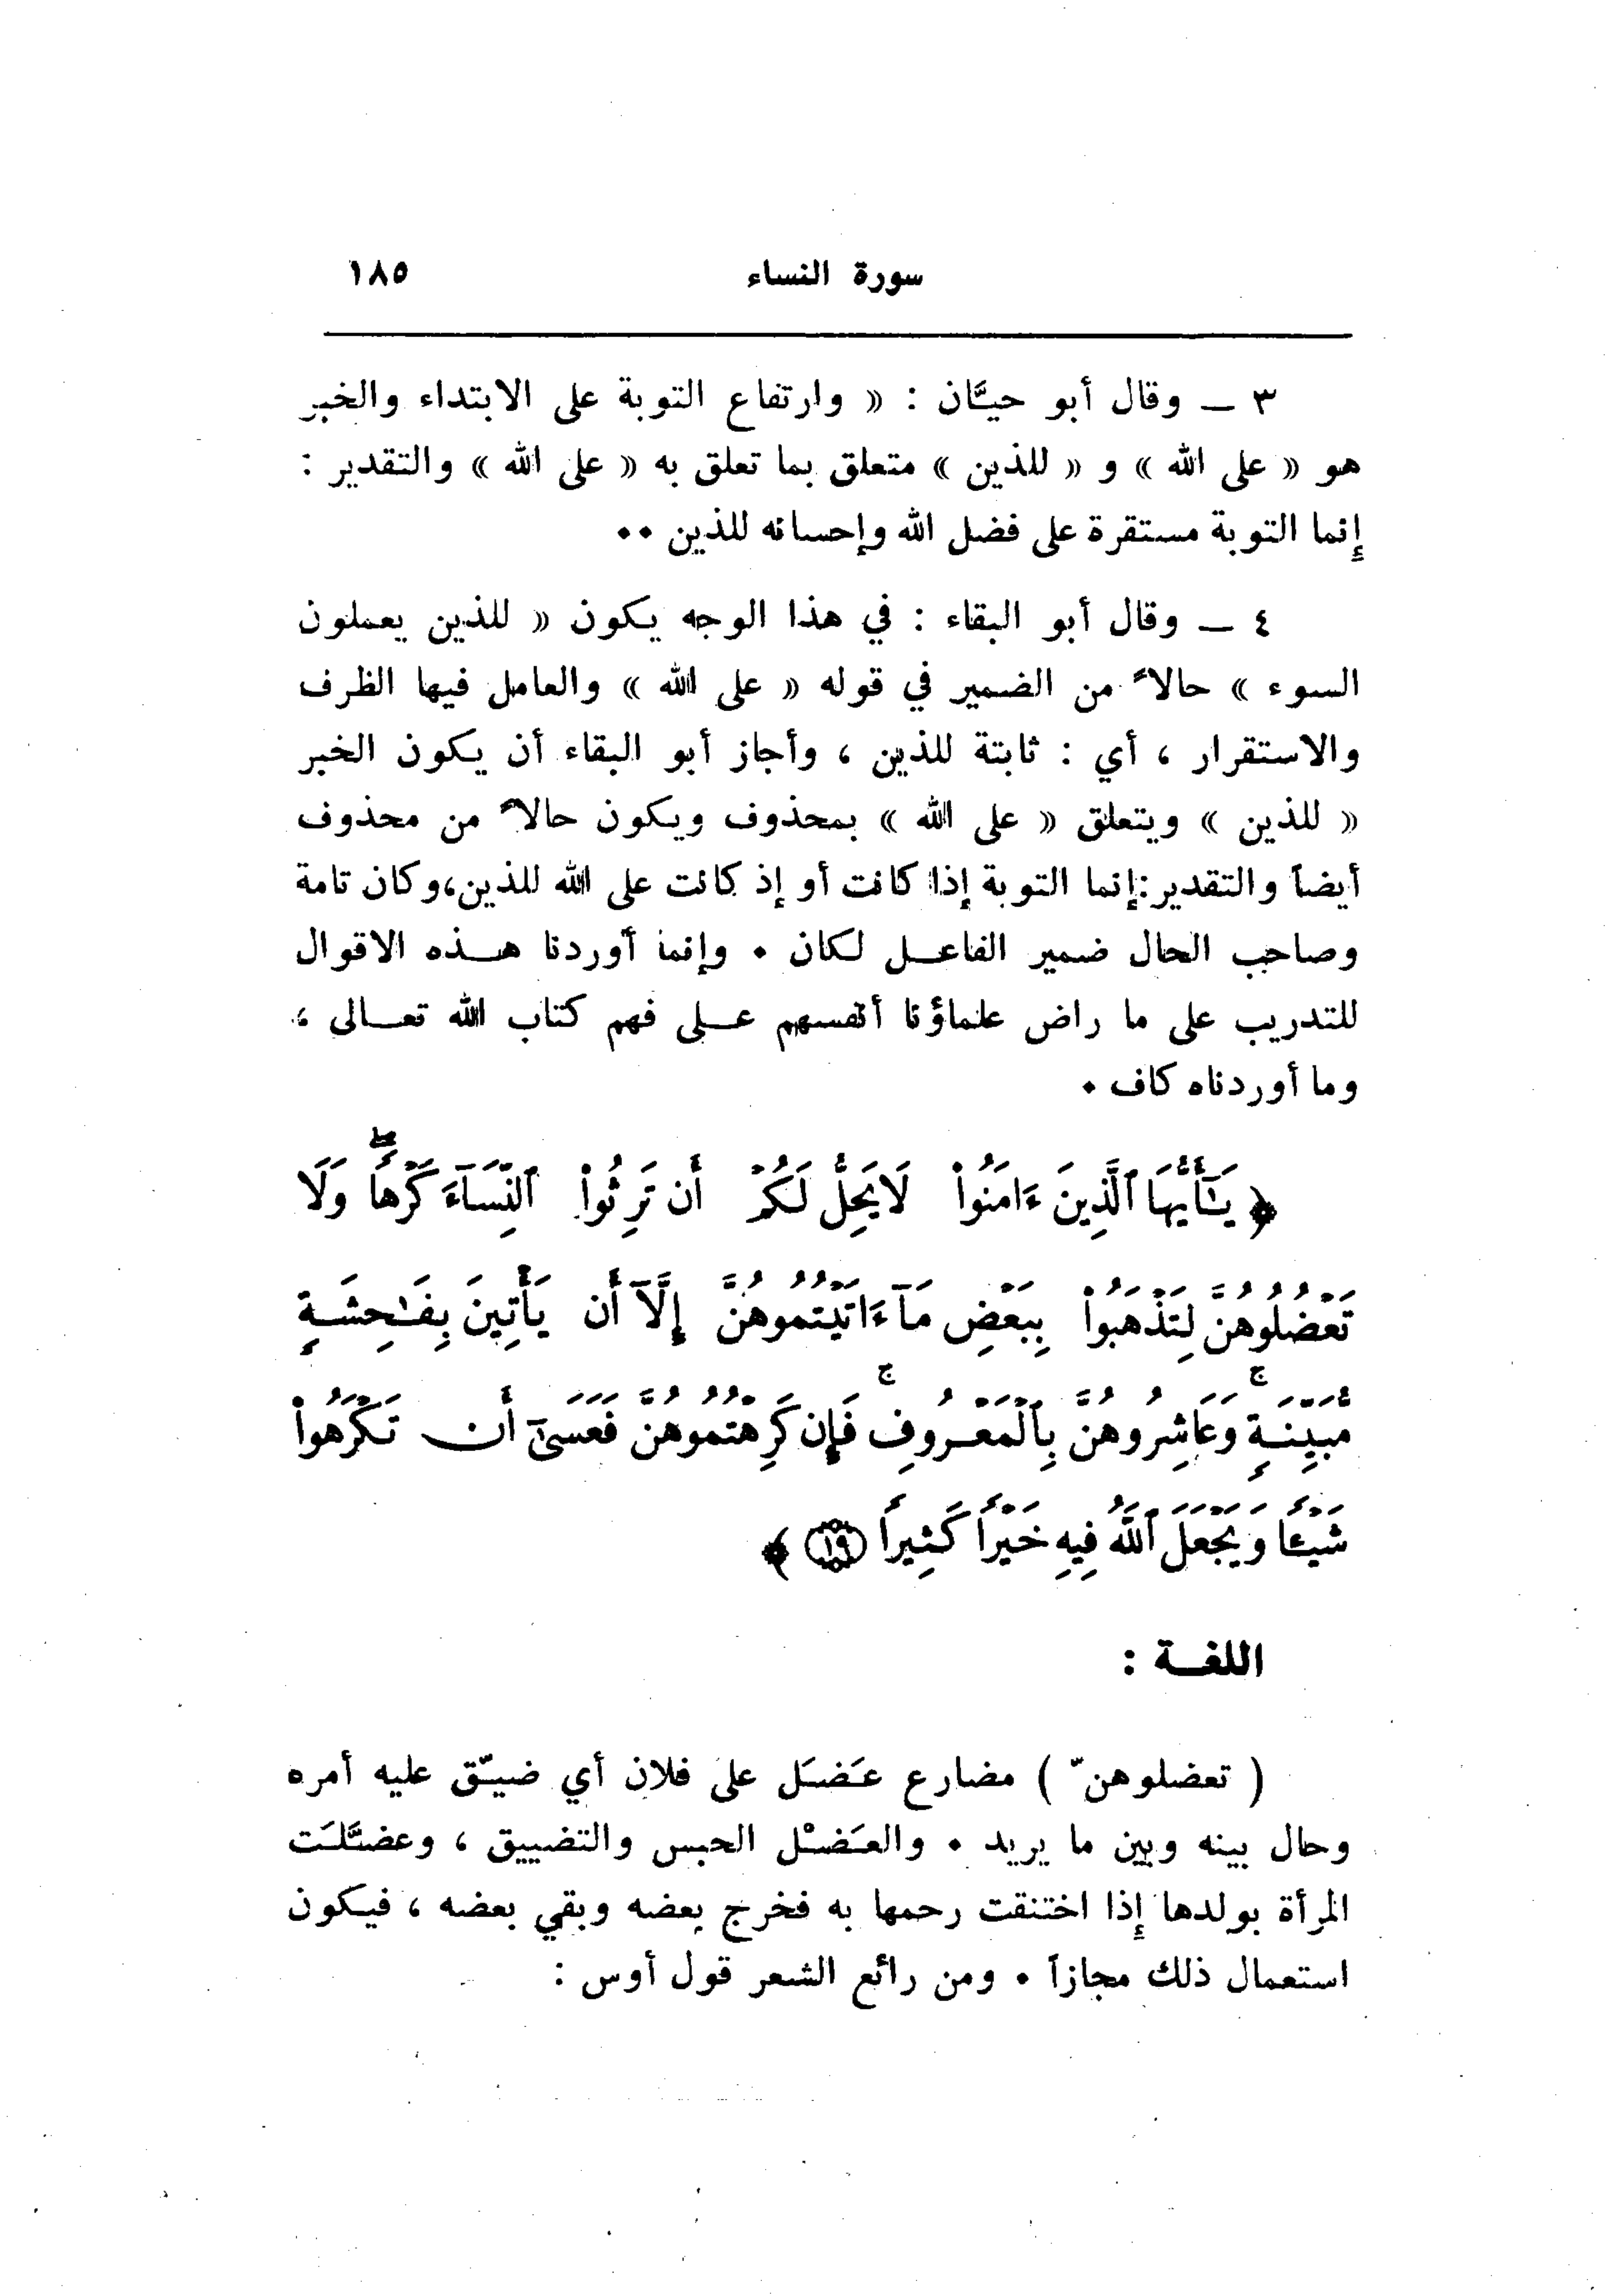 سورة النساء ١٨٥
٣ — وقال أبو حيَّان : « وارتفاع التوبة على الابتداء والخبر
هو « على الله » و « للذين » متعلق بما تعلق به « على الله » والتقدير :
إنما التوبة مستقرة على فضل الله وإحسانه للذين ..
٤ — وقال أبو البقاء : في هذا الوجه يكون « للذين يعملون
السوء » حالاً من الضمير في قوله « على الله » والعامل فيها الظرف
والاستقرار ، أي : ثابتة للذين ، وأجاز أبو البقاء أن يكون الخبر
« للذين » ويتعلق « على الله » بمحذوف ويكون حالاً من محذوف
أيضاً والتقدير:إنما التوبة إذا كانت أو إذ كانت على الله للذين،وكان تامة
وصاحب الحال ضمير الفاعل لكان . وإنما أوردنا هذه الاقوال
للتدريب على ما راض علماؤنا أنفسهم على فهم كتاب الله تعالى ،
وما أوردناه كاف .
﴿ يَـٰٓأَيُّهَا ٱلَّذِينَ ءَامَنُوا۟ لَا يَحِلُّ لَكُمْ أَن تَرِثُوا۟ ٱلنِّسَآءَ كَرْهًاۖ وَلَا
تَعْضُلُوهُنَّ لِتَذْهَبُوا۟ بِبَعْضِ مَآ ءَاتَيْتُمُوهُنَّ إِلَّآ أَن يَأْتِينَ بِفَـٰحِشَةٍ
مُّبَيِّنَةٍۚ وَعَاشِرُوهُنَّ بِٱلْمَعْرُوفِۚ فَإِن كَرِهْتُمُوهُنَّ فَعَسَىٰٓ أَن تَكْرَهُوا۟
شَيْـًٔا وَيَجْعَلَ ٱللَّهُ فِيهِ خَيْرًا كَثِيرًا ١٩ ﴾
اللغة :
( تعضلوهنّ ) مضارع عَضَل على فلان أي ضيّق عليه أمره
وحال بينه وبين ما يريد . والعَضْل الحبس والتضييق ، وعضَّلَت
المرأة بولدها إذا اختنقت رحمها به فخرج بعضه وبقي بعضه ، فيكون
استعمال ذلك مجازاً . ومن رائع الشعر قول أوس :